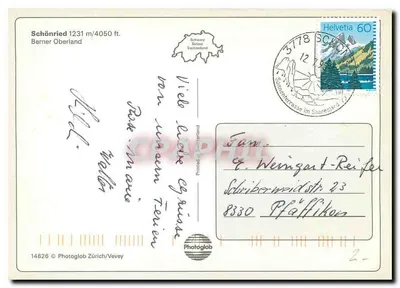 Schönried 1231 m/4050 ft.
Berner Oberland
Schweiz
Suisse
Svizzera
Helvetia 60
3778 SCHÖNRIED
Viele liebe Grüsse
von unsern Ferien
Rose-Marie
Walter
Fam.
E. Weingart-Reifer
Schreberweidstr. 23
8330 Pfäffikon
Photoglob
14826 © Photoglob Zürich/Vevey
2.-